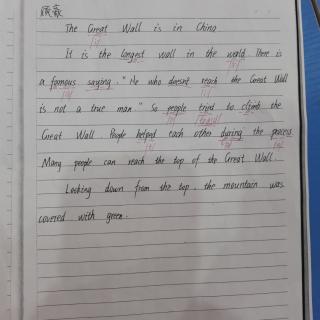 The Great Wall is in China
It is the longest wall in the world. There is
a famous saying. "He who doesn't reach the Great Wall
is not a true man" So people tried to climb the
Great Wall. People helped each other during the process.
Many people can reach the top of the Great Wall.
Looking down from the top, the mountain was
covered with green.